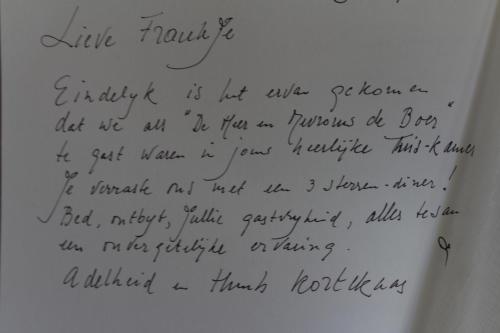 Lieve Frankje
Eindelyk is het ervan gekomen
dat we als "De Heer en Mevrouw de Boer"
te gast waren in jouw heerlijke Huis-kamer
Je verraste ons met een 3 sterren-diner!
Bed, ontbyt, jullie gastvryheid, alles tesam
een onvergetelijke ervaring.
Adelheid en Huub Kortekaas